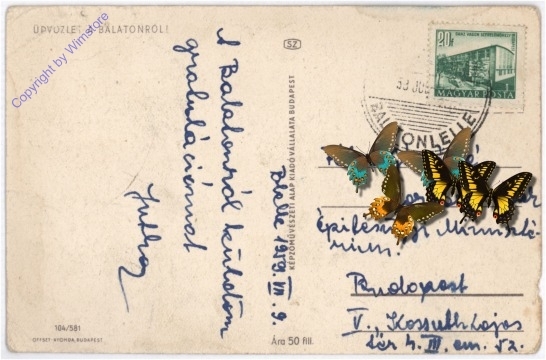 ÜDVÖZLET A BALATONRÓL!
Copyright by Wimstore
A Balatonról küldöm
gratulációimat
Lelle 1959. VII. 9.
104/581
OFFSET-NYOMDA, BUDAPEST
SZ
KÉPZŐMŰVÉSZETI ALAP KIADÓ VÁLLALATA BUDAPEST
Ára 50 fill.
20f
MAGYAR POSTA
BALATONLELLE
Építésügyi Miniszté-
rium.
Budapest
V., Kossuth Lajos
tér 4. III. em. 52.